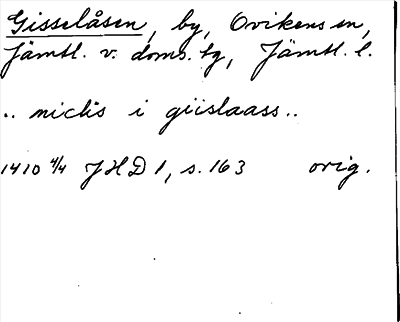 Gisselåsen, by, Ovikens sn,
Jämtl. v. doms. tg, Jämtl. l.
.. niclis i giislaass..
1410 4/4 JHD 1, s. 163 orig.